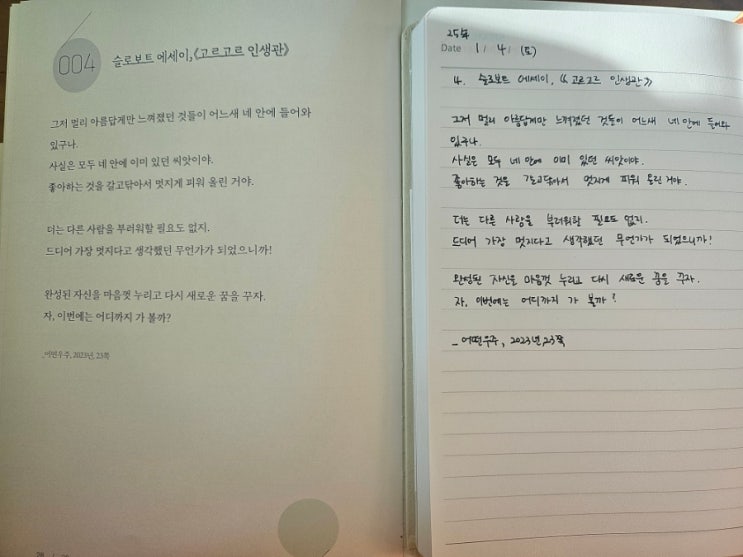 004
슬로보트 에세이, 《고르고르 인생관》
그저 멀리 아름답게만 느껴졌던 것들이 어느새 네 안에 들어와
있구나.
사실은 모두 네 안에 이미 있던 씨앗이야.
좋아하는 것을 갈고닦아서 멋지게 피워 올린 거야.
더는 다른 사람을 부러워할 필요도 없지.
드디어 가장 멋지다고 생각했던 무언가가 되었으니까!
완성된 자신을 마음껏 누리고 다시 새로운 꿈을 꾸자.
자, 이번에는 어디까지 가 볼까?
_어떤우주, 2023년, 23쪽
25年
Date 1 / 4 / (토)
4. 슬로보트 에세이, 《고르고르 인생관》
그저 멀리 아름답게만 느껴졌던 것들이 어느새 네 안에 들어와
있구나.
사실은 모두 네 안에 이미 있던 씨앗이야.
좋아하는 것을 갈고닦아서 멋지게 피워 올린 거야.
더는 다른 사람을 부러워할 필요도 없지.
드디어 가장 멋지다고 생각했던 무언가가 되었으니까!
완성된 자신을 마음껏 누리고 다시 새로운 꿈을 꾸자.
자, 이번에는 어디까지 가 볼까?
_ 어떤우주, 2023년, 23쪽